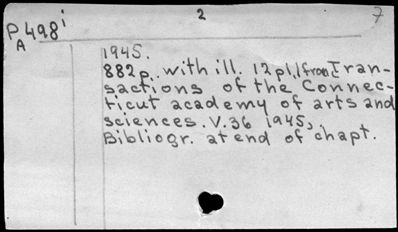 2 7
P498i
A
1945.
882p. with ill. 12pl. (from Tran-
sactions of the Connec-
ticut academy of arts and
sciences. V.36 1945,
Bibliogr. at end of chapt.